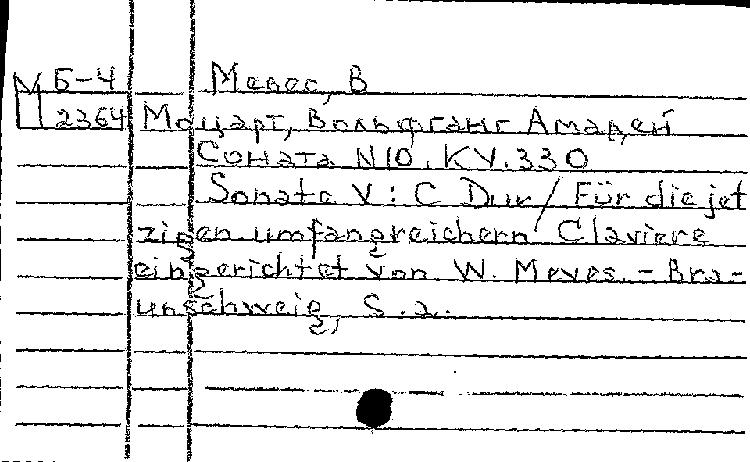 М Б-4 Мевес, В
2364 Моцарт, Вольфганг Амадей
Соната N10. KV.330
Sonate V: C Dur/ Für die jet
zigen umfangreichern Claviere
eingerichtet von W. Meves. - Bra-
unschweig, S.a.